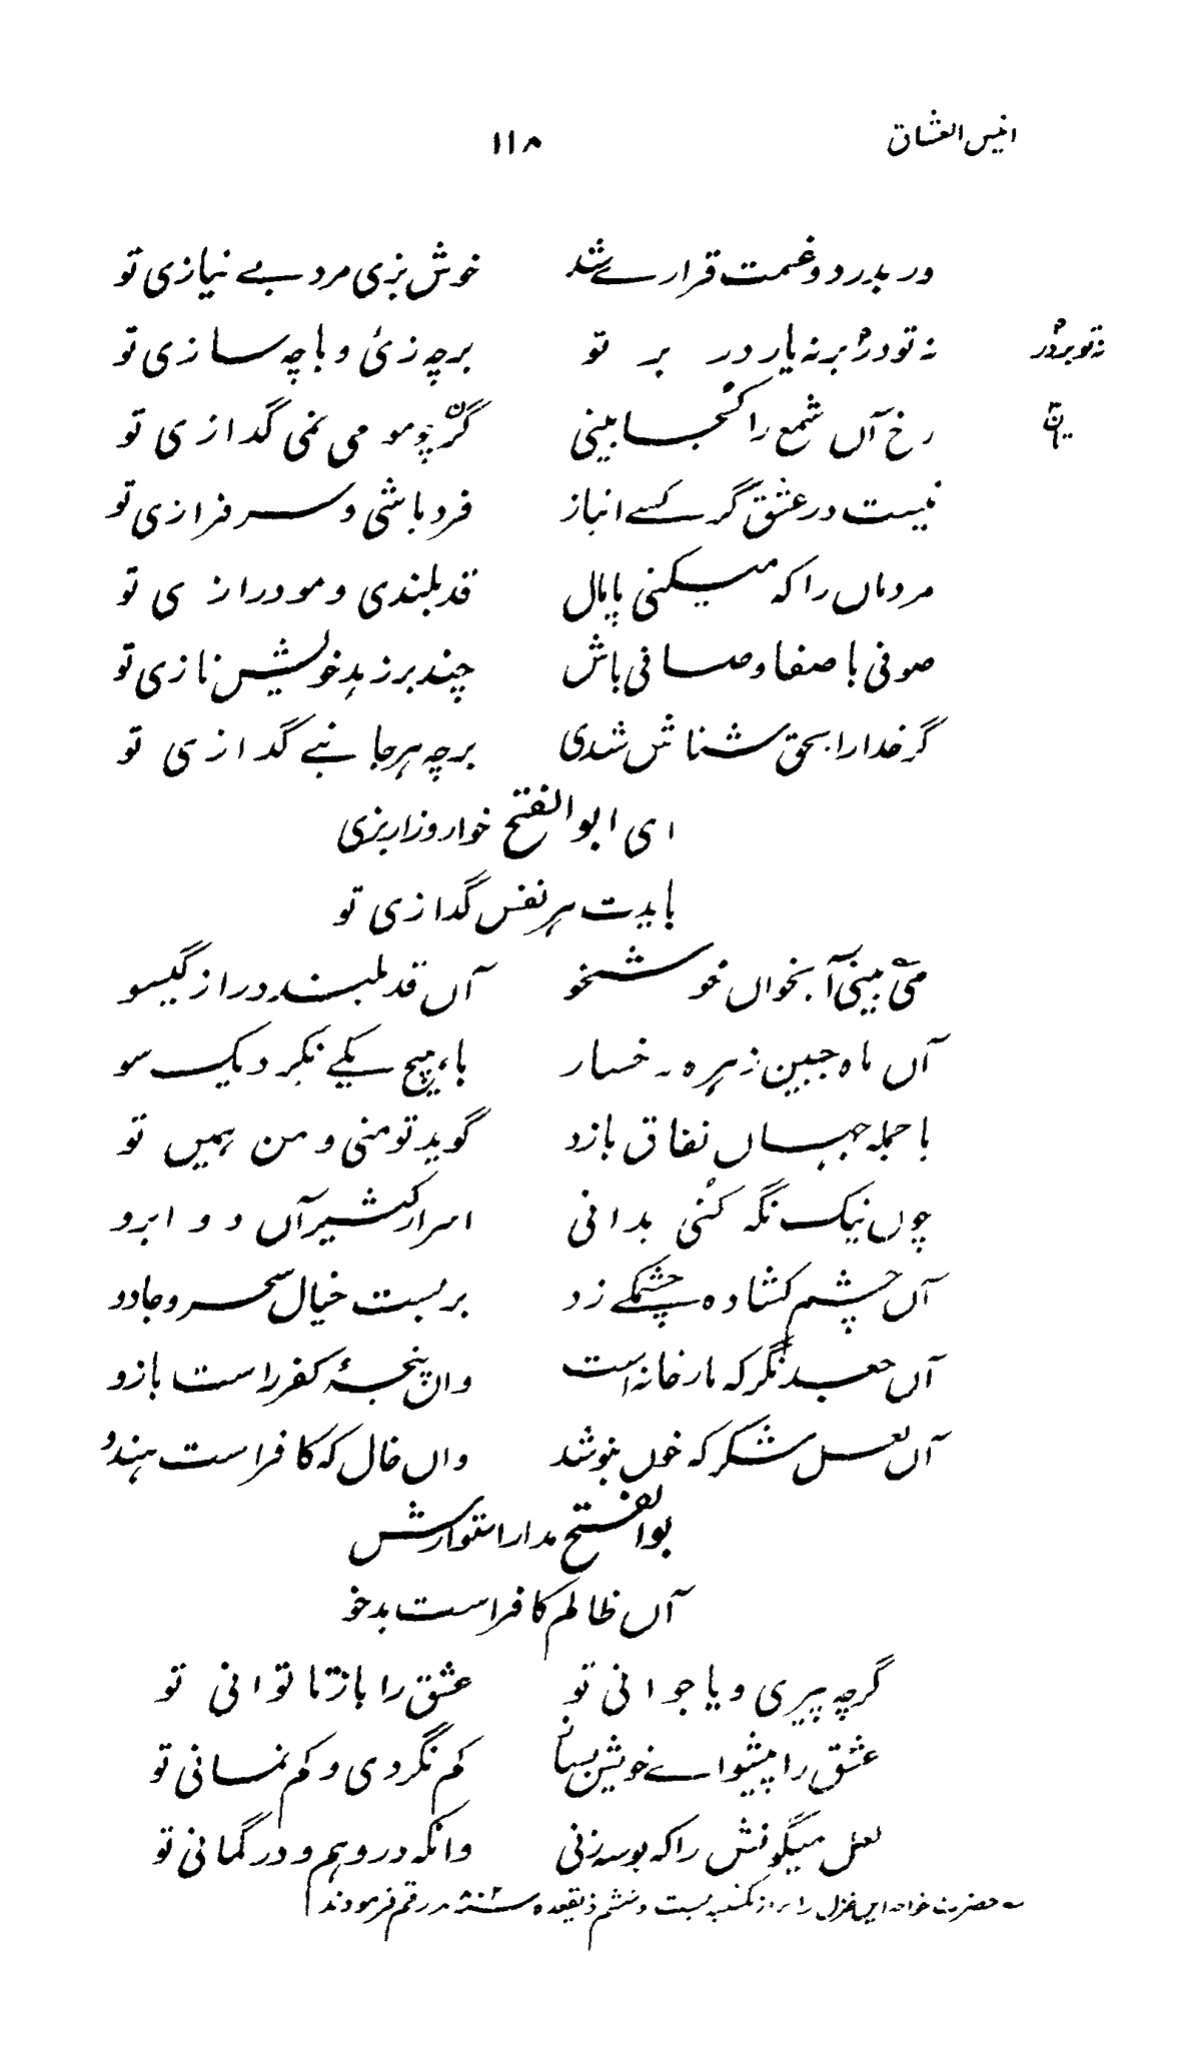 انیس العشاق ۱۱۸
ور بدرد و غمت قرارے شد خوش بزی مرد بے نیازی تو
نہ تو در بر نہ یار در بر تو برچہ زئ و باچہ سازی تو
نہ تو بر در
رخ آں شمع را کجا بینی گر چو مومی نمی گدازی تو
نیست در عشق گر کسے انباز فرد باشی و سرفرازی تو
مردماں را کہ میکنی پامال قد بلندی و مو درازی تو
صوفی باصفا و صافی باش چند بر زہد خویش نازی تو
گر خدا را بحق شناش شدی برچہ ہر جانبے گدازی تو
ای ابوالفتح خوار و زار بزی
بایدت ہر نفس گدازی تو
می بینی آ بخواں خوشخو آں قد بلند دراز گیسو
آں ماہ جبین زہرہ رخسار با ہیچ یکے نکرد یک سو
با جملہ جہاں نفاق بازد گوید تو منی و من ہمیں تو
چوں نیک نگہ کنی بدانی اسرار کشیر آں دو ابرو
آں چشم کشادہ چشمکے زد بر بست خیال سحر و جادو
آں جعد نگر کہ مار خانہ است وان پنجۂ کفر راست بازو
آں لعل شکر کہ خوں بنوشد واں خال کہ کافر است ہندو
بوالفتح مدار استوارش
آں ظالم کافر است بدخو
گرچہ پیری و یا جوانی تو عشق را باز تا توانی تو
عشق را پیشواے خویش بساز کم نگردی و کم نمانی تو
لعل میگونش را کہ بوسہ زنی وانکہ در وہم و در گمانی تو
حضرت خواجہ ایں غزل را بروز یکشنبہ بست و ششم ذیقعدہ سنہ ۸۰۲ ہ رقم فرمودند